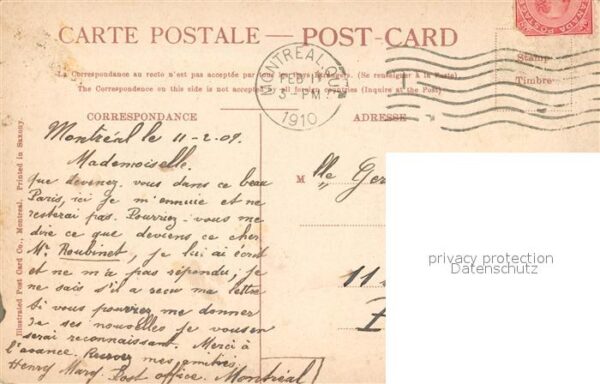 CARTE POSTALE — POST-CARD
La Correspondance au recto n'est pas acceptée par tous les Pays Etrangers. (Se renseigner à la Poste)
The Correspondence on this side is not accepted by all foreign countries (Inquire at the Post)
MONTREAL QUE
FEB 11
3 - PM
1910
CANADA POSTAGE
Stamp
Timbre
CORRESPONDANCE
ADRESSE
Illustrated Post Card Co., Montreal. Printed in Saxony.
Montréal le 11-2-09.
Mademoiselle.
que devenez. vous dans ce beau
Paris, ici je m'ennuie et ne
resterai pas. Pourriez-vous me
dire ce que deviens ce cher
Mr. Roubinet, je lui ai écrit
et ne m'a pas répondu; je
ne sais s'il a recu ma lettre
Si vous pouvez me donner
de ses nouvelles je vous en
serai reconnaissant. Merci à
l'avance. Recevez mes amitiés
Henry Post office. Montréal
M lle Ger
11
privacy protection
Datenschutz